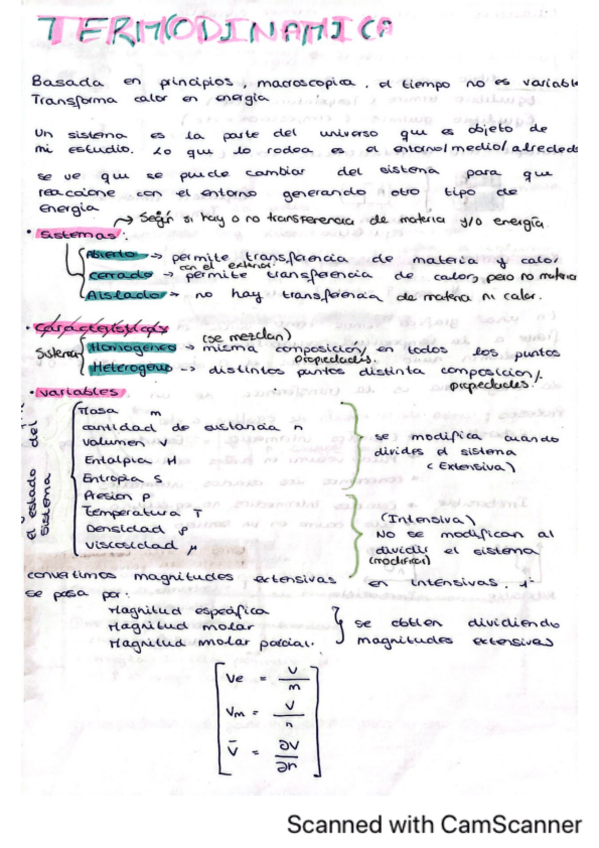 TERMODINAMICA
Basada en principios, macroscopica. el tiempo no es variabl
Transforma calor en energía
Un sistema es la parte del universo que es objeto de
mi estudio. Lo que lo rodea es el entorno/medio/alreded
se ve que se puede cambiar del sistema para que
reaccione con el entorno generando otro tipo de
energía
→ Según si hay o no transferencia de materia y/o energía.
• Sistemas:
Abierto → permite transferencia de materia y calor
con el exterior
Cerrado → permite transferencia de calor, pero no materia
Aislado → no hay transferencia de materia ni calor.
• Características
(se mezclan)
Sistema Homogeneo → misma composición/ en todos los puntos
propiedades.
Heterogeneo -> distintos puntos distinta composición/
propiedades.
• Variables
el estado del
sistema
Masa m
cantidad de sustancia n
volumen V
Entalpia H
Entropia S
se modifica cuando
divides el sistema
(Extensiva)
Presion P
Temperatura T
Densidad ρ
Viscosidad μ
(Intensiva)
No se modifican al
dividir el sistema
(modificar)
convertimos magnitudes extensivas en intensivas.
se pasa por:
Magnitud especifica
Magnitud molar
Magnitud molar parcial.
se obtien dividiendo
magnitudes extensivas
Ve = V/m
Vm = V/n
V̄ = ∂V/∂n
Scanned with CamScanner